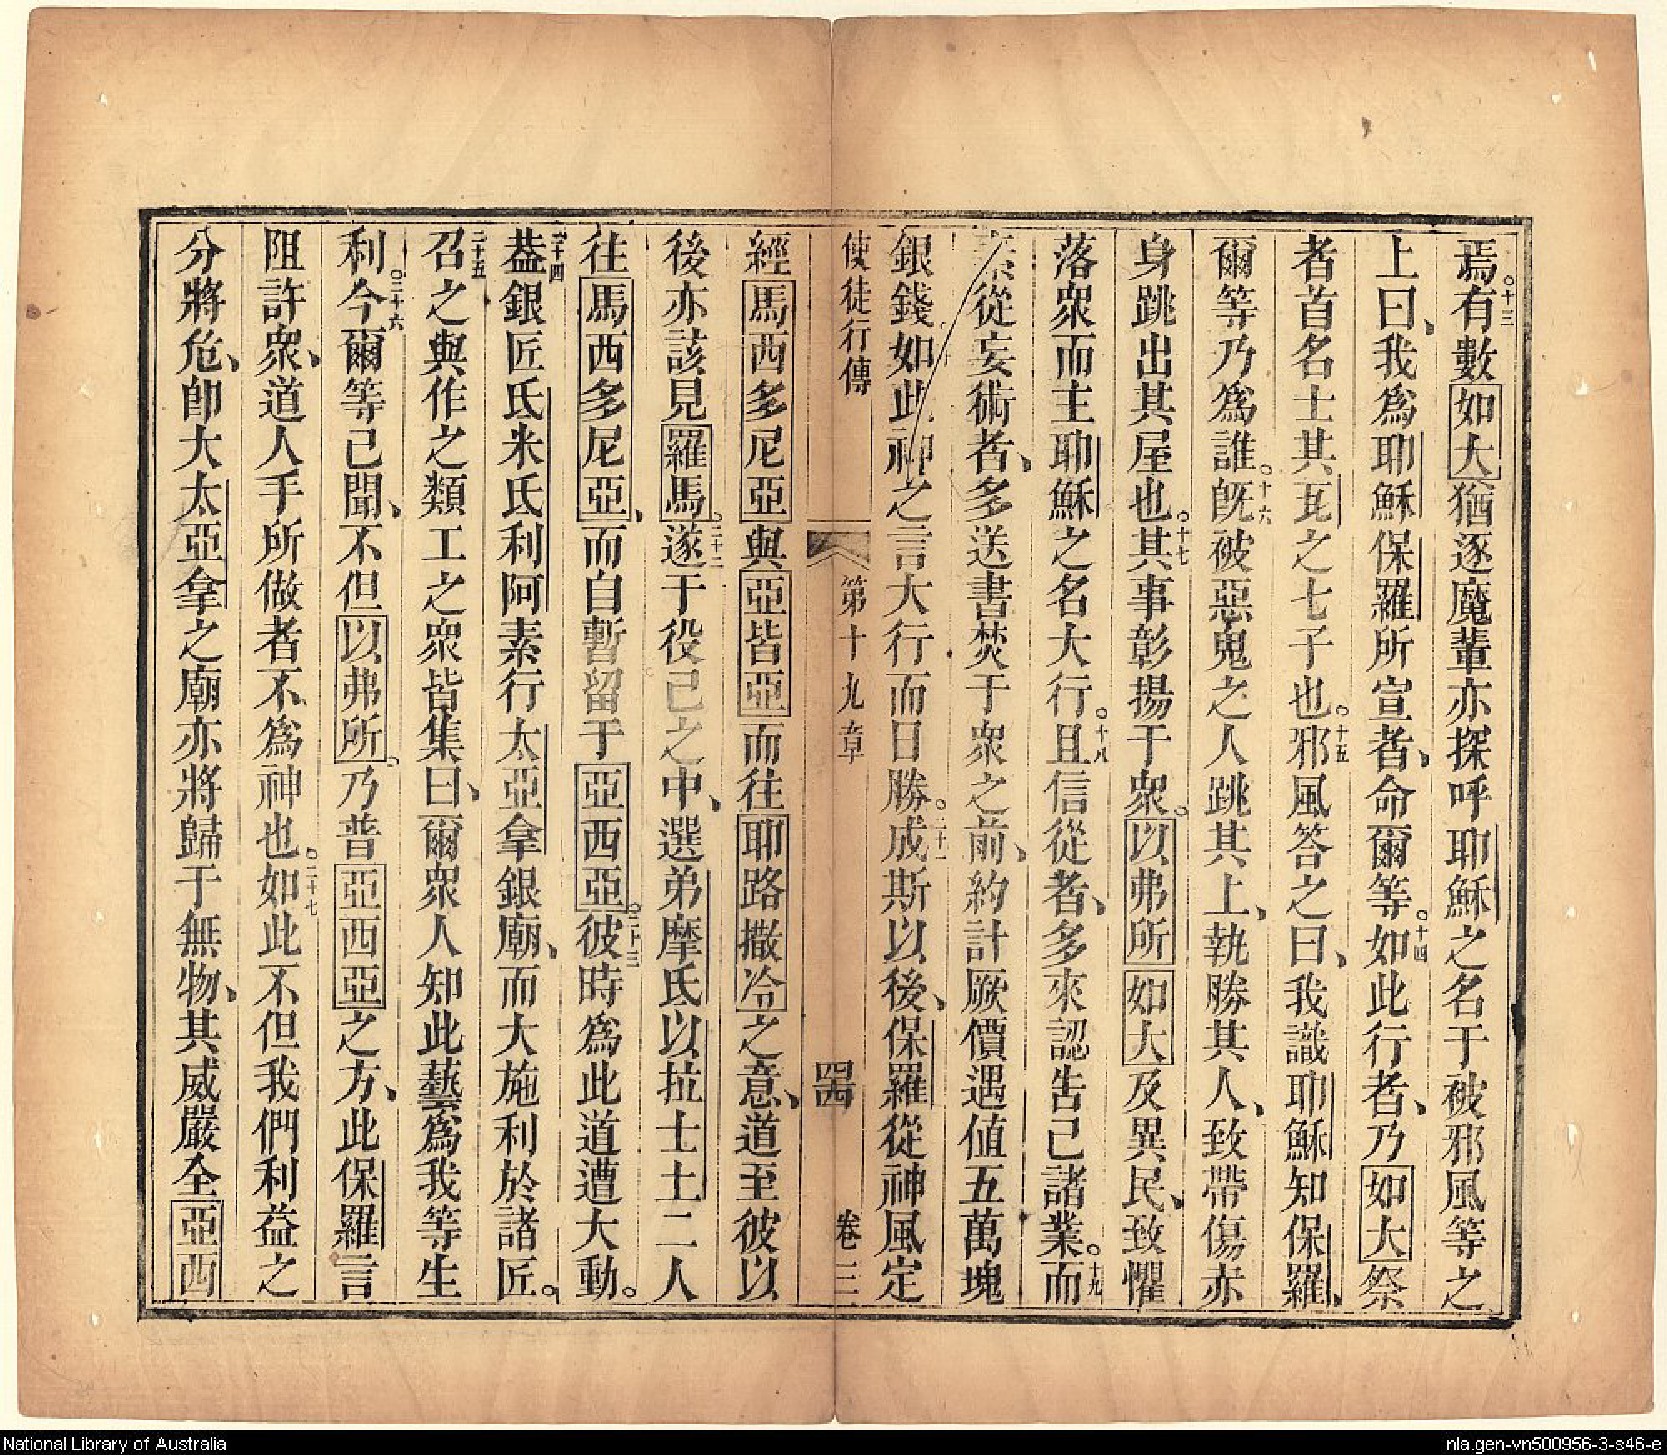 焉。十三有數如大猶逐魔輩亦探呼耶穌之名于被邪風等之
上曰、我爲耶穌保羅所宣者、命爾等。十四如此行者、乃如大祭
者首名士其瓦之七子也。十五邪風答之曰、我識耶穌知保羅、
爾等乃爲誰。十六旣被惡鬼之人跳其上、執勝其人、致帶傷赤
身跳出其屋也。十七其事彰揚于衆。以弗所如大及異民、致懼
落衆而主耶穌之名大行。十八且信從者、多來認吿己諸業。十九而
素從妄術者、多送書焚于衆之前、約計厥價遇值五萬塊
銀錢如此神之言大行而日勝。二十一成斯以後、保羅從神風定
使徒行傳 第十九章 四四 卷三
經馬西多尼亞與亞皆亞而往耶路撒冷之意、道至彼以
後亦該見羅馬。二十二遂于役己之中、選弟摩氏以拉士土二人
往馬西多尼亞、而自暫留于亞西亞。二十三彼時爲此道遭大動。
二十四葢銀匠氏米氏利阿素行太亞拿銀廟、而大施利於諸匠。
二十五召之與作之類工之衆皆集曰、爾衆人知此藝爲我等生
利。二十六今爾等已聞、不但以弗所。乃普亞西亞之方、此保羅言
阻許衆、道人手所做者不爲神也。二十七如此不但我們利益之
分將危、卽大太亞拿之廟亦將歸于無物、其威嚴全亞西
National Library of Australia
nla.gen-vn500956-3-s46-e